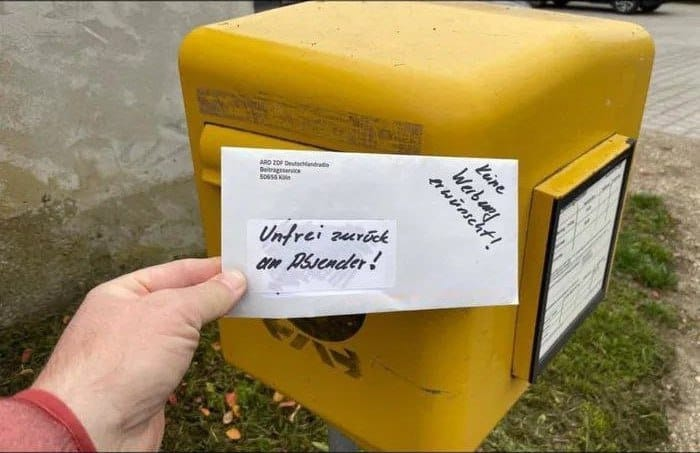 ARD ZDF Deutschlandradio
Beitragsservice
50656 Köln
Keine
Werbung
erwünscht!
Unfrei zurück
an Absender!